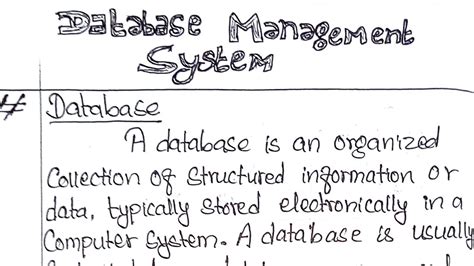 Database Management
System
# Database
A database is an organized
Collection of structured information or
data, typically stored electronically in a
Computer System. A database is usually